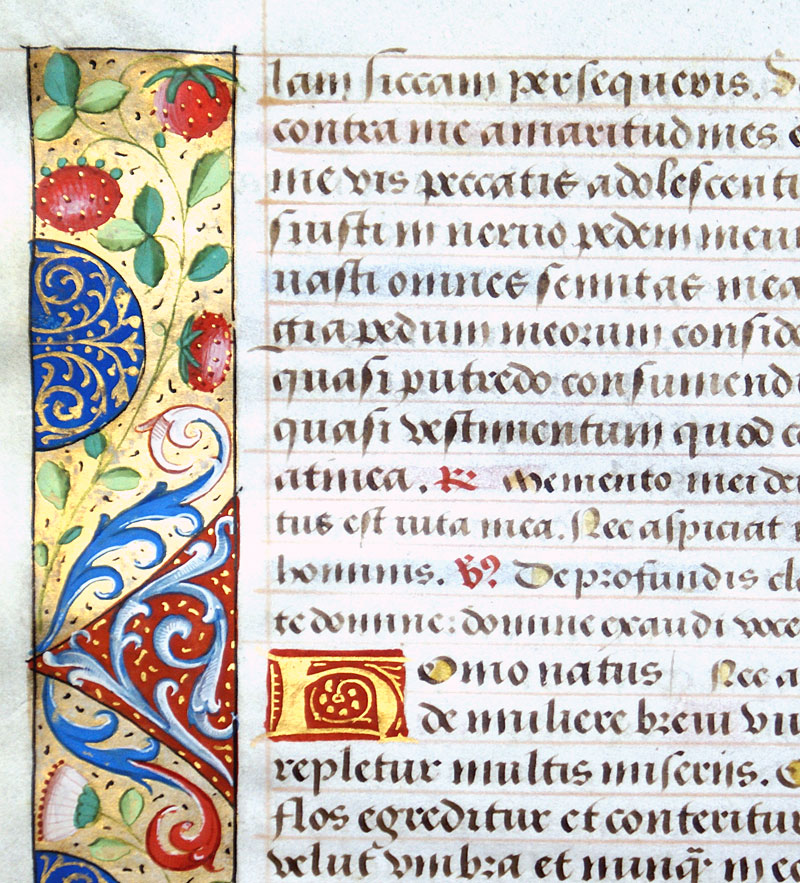 lam siccam persequeris. S
contra me amaritudines e
me vis peccatis adolescenti
suisti in neruo pedem meu
uasti omnes semitas mea
gia pedum meorum conside
quasi putredo consumend
quasi vestimentum quod co
a tinea. R. Memento mei de
tus est uita mea. Nec aspiciat
hominis. V? De profundis cla
te domine: domine exaudi voce
Homo natus Nec a
de muliere breui vi
repletur multis miseriis. Q
flos egreditur et conteritur
velut vmbra et nunq̄ in eo